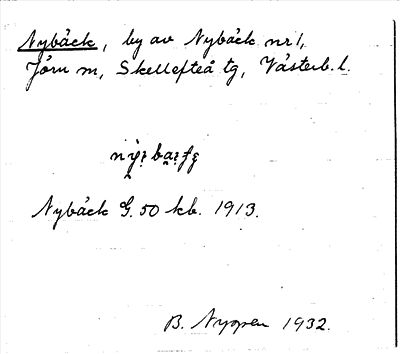 Nybäck, by av Nybäck nr 1,
Jörn sn, Skellefteå tg, Västerb. l.
Nybäck G. 50 kb. 1913.
B. Nyppen 1932.